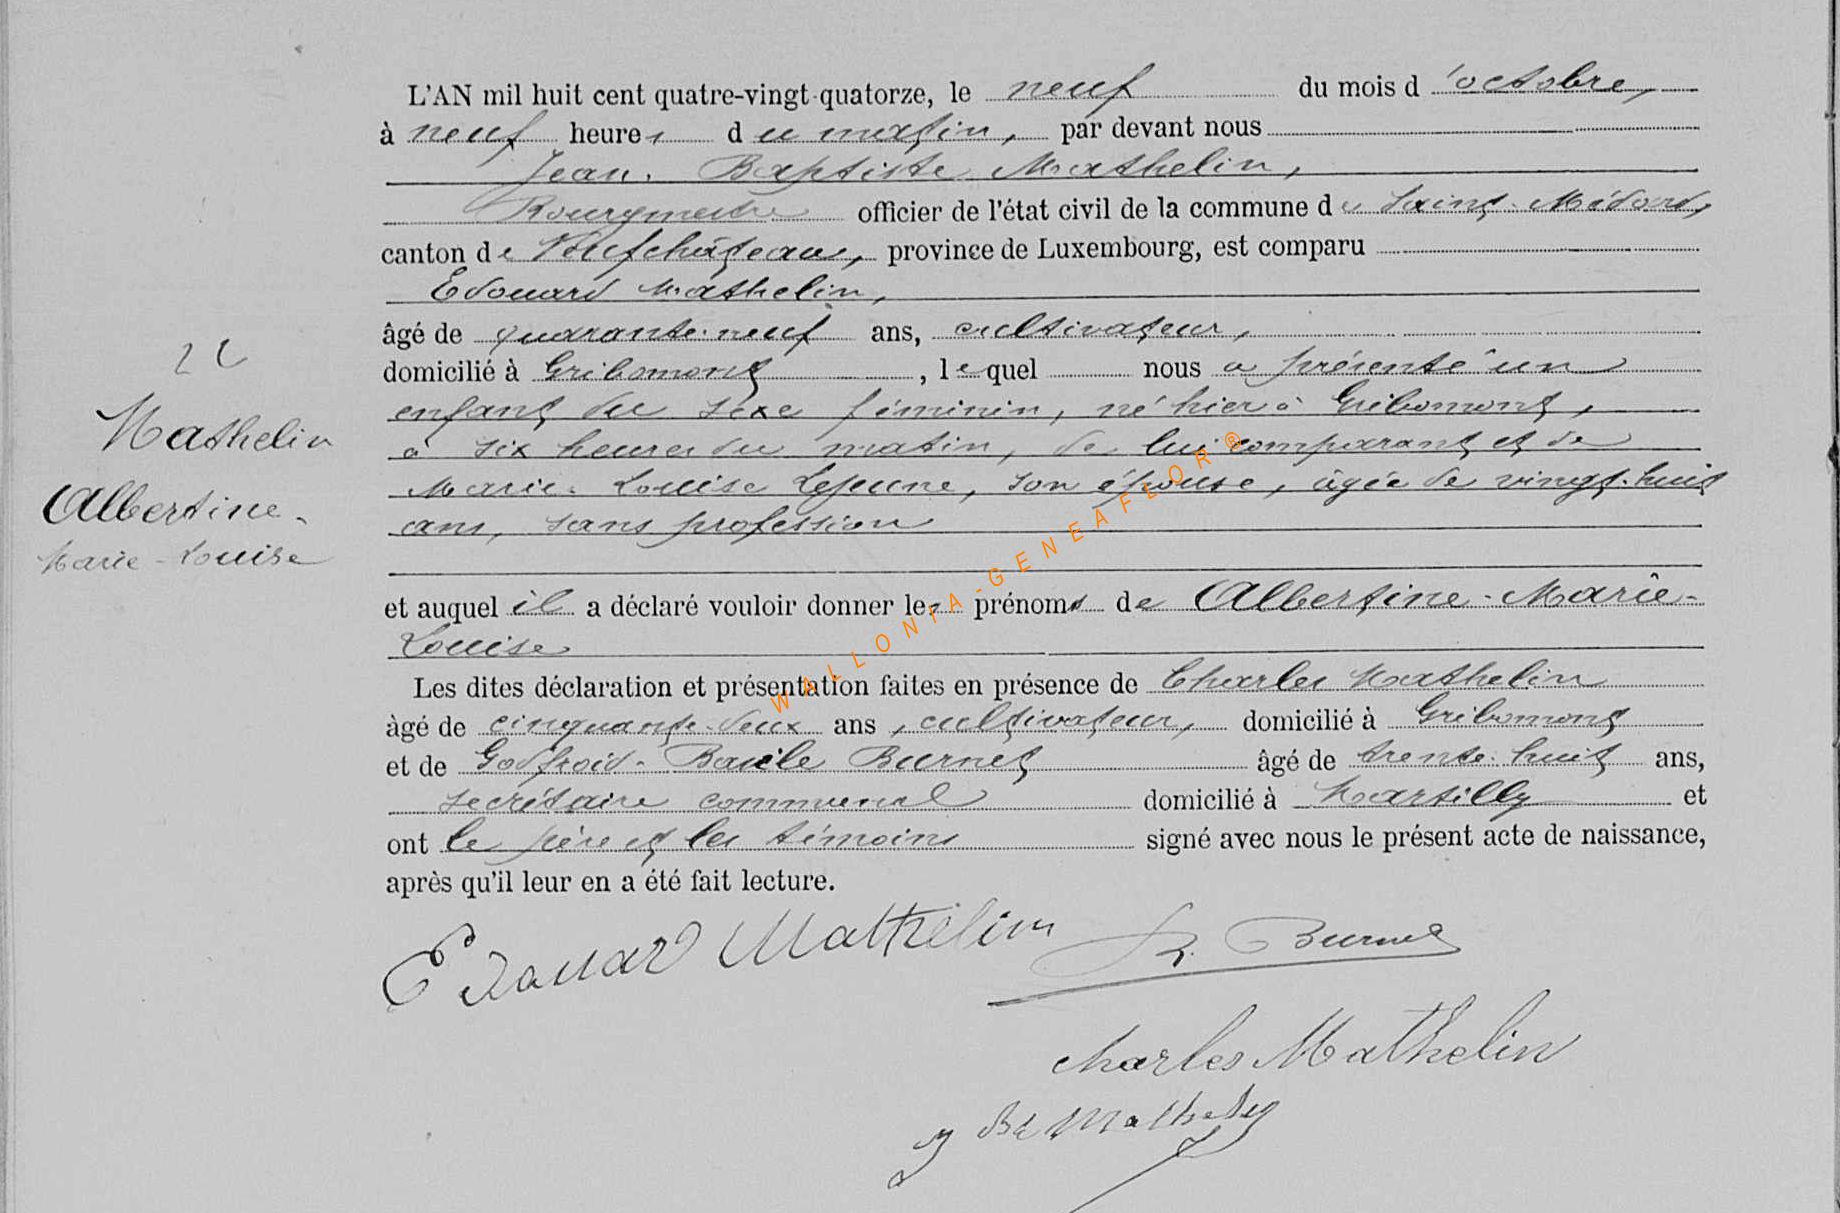 L'AN mil huit cent quatre-vingt-quatorze, le neuf du mois d'octobre,
à neuf heures du matin, par devant nous
Jean-Baptiste Mathelin,
Bourgmestre officier de l'état civil de la commune de Saint-Médard,
canton de Neufchâteau, province de Luxembourg, est comparu
Edouard Mathelin,
âgé de quarante-neuf ans, cultivateur,
domicilié à Gribomont, lequel nous a présenté un
enfant du sexe féminin, né hier à Gribomont,
à six heures du matin, de lui comparant et de
Marie-Louise Lejeune, son épouse, âgée de vingt-huit
ans, sans profession
et auquel il a déclaré vouloir donner les prénoms de Albertine-Marie-
Louise
Les dites déclaration et présentation faites en présence de Charles Mathelin
âgé de cinquante-deux ans, cultivateur, domicilié à Gribomont
et de Godfroid-Basile Burnet âgé de trente-huit ans,
secrétaire communal domicilié à Martilly et
ont le père et les témoins signé avec nous le présent acte de naissance,
après qu'il leur en a été fait lecture.
Mathelin
Albertine-
Marie-Louise
Edouard Mathelin
Burnet
Charles Mathelin
J Bte Mathelin
WALLONIA-GENEAFLOR®